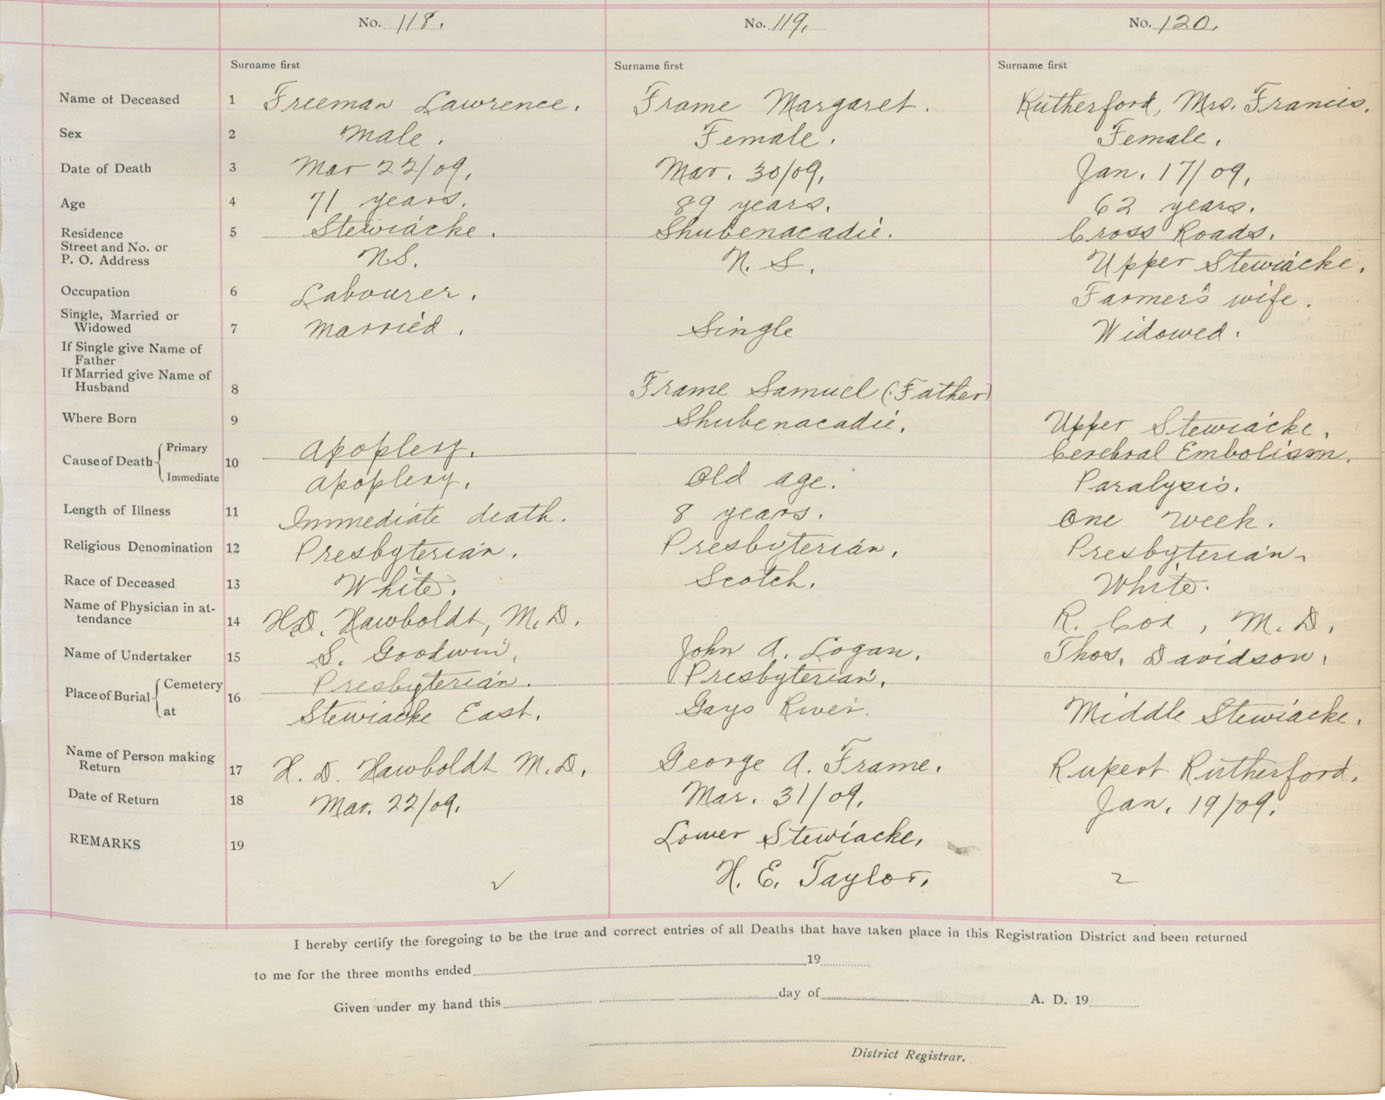 No. 118. No. 119. No. 120.
Surname first Surname first Surname first
Name of Deceased 1 Freeman Lawrence. Frame Margaret. Rutherford, Mrs. Francis.
Sex 2 Male. Female. Female.
Date of Death 3 Mar 22/09. Mar. 30/09. Jan. 17/09.
Age 4 71 years. 89 years. 62 years.
Residence 5 Stewiacke. Shubenacadie. Cross Roads.
Street and No. or
P. O. Address N.S. N. S. Upper Stewiacke.
Occupation 6 Labourer. Farmer's wife.
Single, Married or
Widowed 7 Married. Single Widowed.
If Single give Name of
Father
If Married give Name of
Husband 8 Frame Samuel (Father)
Where Born 9 Shubenacadie. Upper Stewiacke.
Cause of Death Primary 10 Apoplexy. Cerebral Embolism.
Immediate Apoplexy. Old age. Paralysis.
Length of Illness 11 Immediate death. 8 years. One week.
Religious Denomination 12 Presbyterian. Presbyterian. Presbyterian.
Race of Deceased 13 White. Scotch. White.
Name of Physician in at-
tendance 14 H.D. Hawboldt, M.D. R. Cox, M.D.
Name of Undertaker 15 S. Goodwin. John A. Logan. Thos. Davidson.
Place of Burial Cemetery 16 Presbyterian. Presbyterian.
at Stewiacke East. Gays River. Middle Stewiacke.
Name of Person making
Return 17 H. D. Hawboldt M.D. George A. Frame. Rupert Rutherford.
Date of Return 18 Mar. 22/09. Mar. 31/09. Jan. 19/09.
REMARKS 19 Lower Stewiacke.
H. E. Taylor.
I hereby certify the foregoing to be the true and correct entries of all Deaths that have taken place in this Registration District and been returned
to me for the three months ended 19
Given under my hand this day of A. D. 19
District Registrar.